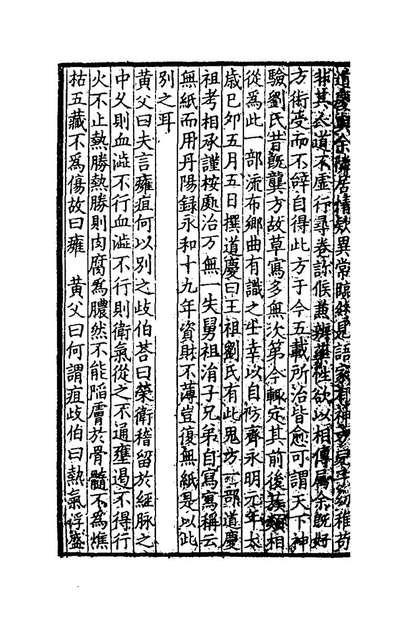 道慶與余隣居情欵異常臨終見語家有神方兒子幼稚苟
非其人道不虛行尋卷診候兼辨藥性欲以相傳屬余旣好
方術受而不辤自得此方于今五載所治皆愈可謂天下神
驗劉氏昔旣龔方故草寫多無次第今輒定其前後蔟類相
從爲此一部流布鄉曲有識之士幸以自防齊永明元年太
歳巳卯五月五日撰道慶曰王祖劉氏有此鬼方一部道慶
祖考相承謹按處治万無一失舅祖涓子兄弟自寫寫稱云
無紙而用丹陽録永和十九年資財不薄豈復無紙是以此
別之耳
黄父曰夫言癰疽何以別之歧伯荅曰榮衛稽留於經脉之
中久則血澁不行血澁不行則衛氣從之不通壅遏不得行
火不止熱勝熱勝則肉腐爲膿然不能陷膚於骨髓不爲燋
枯五藏不爲傷故曰癰 黄父曰何謂疽歧伯曰熱氣浮盛